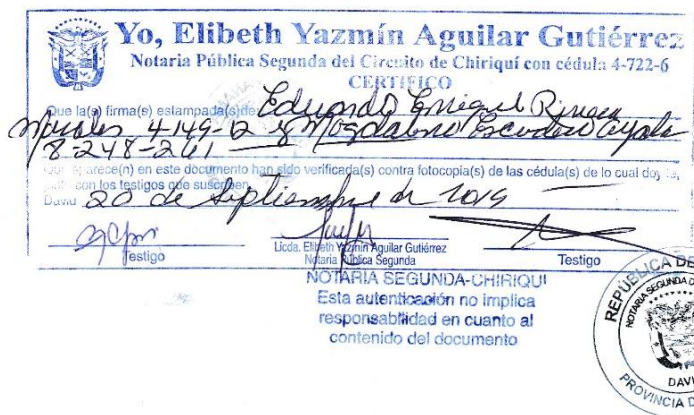 Yo, Elibeth Yazmín Aguilar Gutiérrez
Notaria Pública Segunda del Circuito de Chiriquí con cédula 4-722-6
CERTIFICO
Que la(s) firma(s) estampada(s) de: Eduardo Enrique
Morales 4-149-12 y Magdaleno Escudero Ayala
8-248-261
en este documento han sido verificada(s) contra fotocopia(s) de las cédula(s) de lo cual doy
con los testigos que suscriben.
David 20 de Septiembre de 2019
Testigo
Licda. Elibeth Yazmín Aguilar Gutiérrez
Notaria Pública Segunda
Testigo
NOTARIA SEGUNDA-CHIRIQUI
Esta autenticación no implica
responsabilidad en cuanto al
contenido del documento
REPÚBLICA DE
NOTARIA SEGUNDA D
DAVI
PROVINCIA D